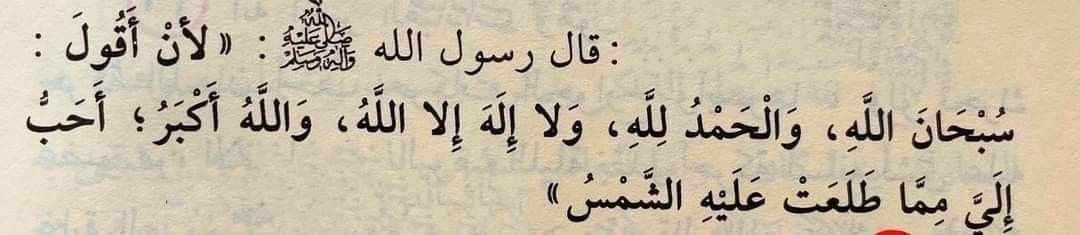 : قال رسول الله ﷺ : « لأنْ أَقُولَ :
سُبْحَانَ اللَّهِ، وَالْحَمْدُ لِلَّهِ، وَلا إِلَهَ إِلا اللَّهُ، وَاللَّهُ أَكْبَرُ؛ أَحَبُّ
إِلَيَّ مِمَّا طَلَعَتْ عَلَيْهِ الشَّمْسُ»